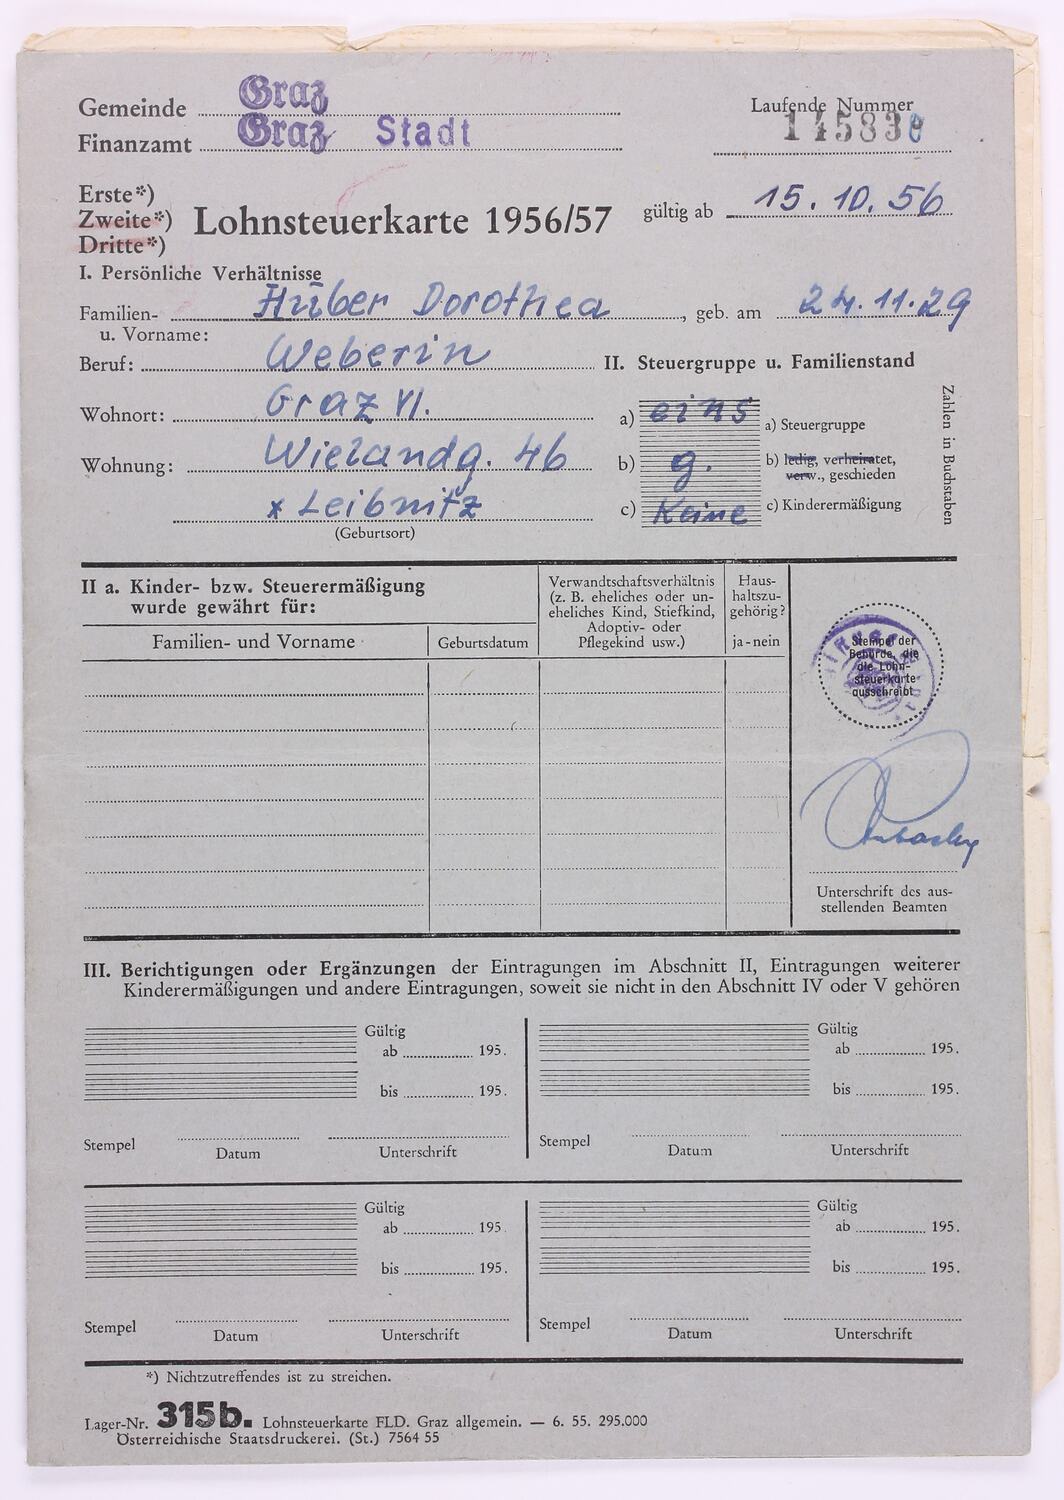 Gemeinde Graz
Laufende Nummer
Finanzamt Graz Stadt
Erste*)
Zweite*)
Dritte*)
Lohnsteuerkarte 1956/57
gültig ab 15. 10. 56
I. Persönliche Verhältnisse
Familien- u. Vorname: Huber Dorothea, geb. am 24.11.29
Beruf: Weberin
II. Steuergruppe u. Familienstand
Wohnort: Graz VI.
a) eins a) Steuergruppe
Wohnung: Wielandg. 46
b) g. b) ledig, verheiratet,
verw., geschieden
x Leibnitz
(Geburtsort)
c) Keine c) Kinderermäßigung
Zahlen in Buchstaben
II a. Kinder- bzw. Steuerermäßigung
wurde gewährt für:
Familien- und Vorname
Geburtsdatum
Verwandtschaftsverhältnis
(z. B. eheliches oder un-
eheliches Kind, Stiefkind,
Adoptiv- oder
Pflegekind usw.)
Haus-
haltszu-
gehörig?
ja - nein
Stempel der
Behörde, die
die Lohn-
steuerkarte
ausschreibt
Unterschrift des aus-
stellenden Beamten
III. Berichtigungen oder Ergänzungen der Eintragungen im Abschnitt II, Eintragungen weiterer
Kinderermäßigungen und andere Eintragungen, soweit sie nicht in den Abschnitt IV oder V gehören
Gültig
ab 195.
bis 195.
Stempel Datum Unterschrift
Gültig
ab 195.
bis 195.
Stempel Datum Unterschrift
Gültig
ab 195.
bis 195.
Stempel Datum Unterschrift
Gültig
ab 195.
bis 195.
Stempel Datum Unterschrift
*) Nichtzutreffendes ist zu streichen.
Lager-Nr. 315b. Lohnsteuerkarte FLD. Graz allgemein. — 6. 55. 295.000
Österreichische Staatsdruckerei. (St.) 7564 55